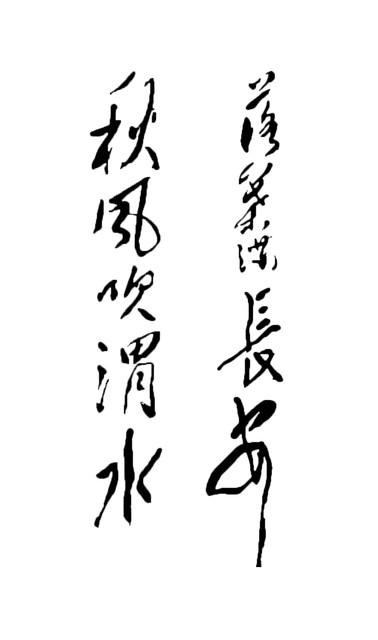 秋風吹渭水
落葉滿長安